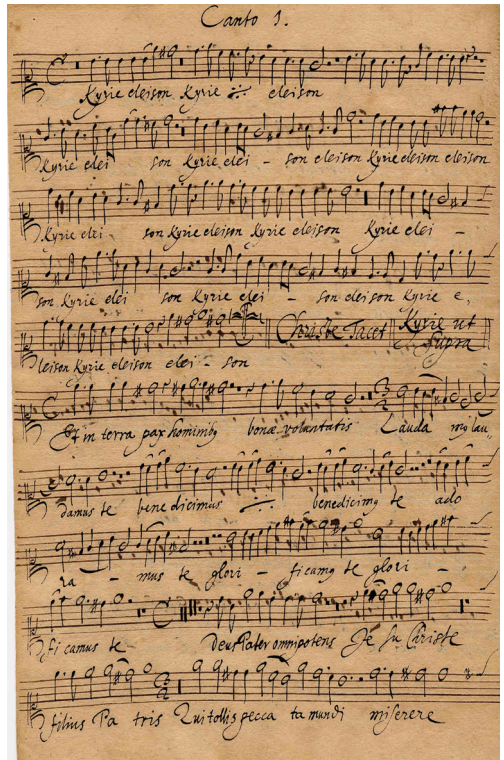 Canto 1.
Kyrie eleison Kyrie eleison
Kyrie elei son Kyrie elei - son eleison Kyrie eleison eleison
Kyrie elei - son Kyrie eleison Kyrie eleison Kyrie elei -
son Kyrie elei son Kyrie elei - son eleison Kyrie e,
leison Kyrie eleison elei - son Christe Tacet Kyrie ut
supra
Et in terra pax hominibg bonæ voluntatis Lauda mg lau
damus te bene dicimus benedicimg te ado
ra - mus te glori - ficamg te glori -
fi camus te Deus Pater omnipotens Je su Christe
filius Pa tris Qui tollis pecca ta mundi miserere